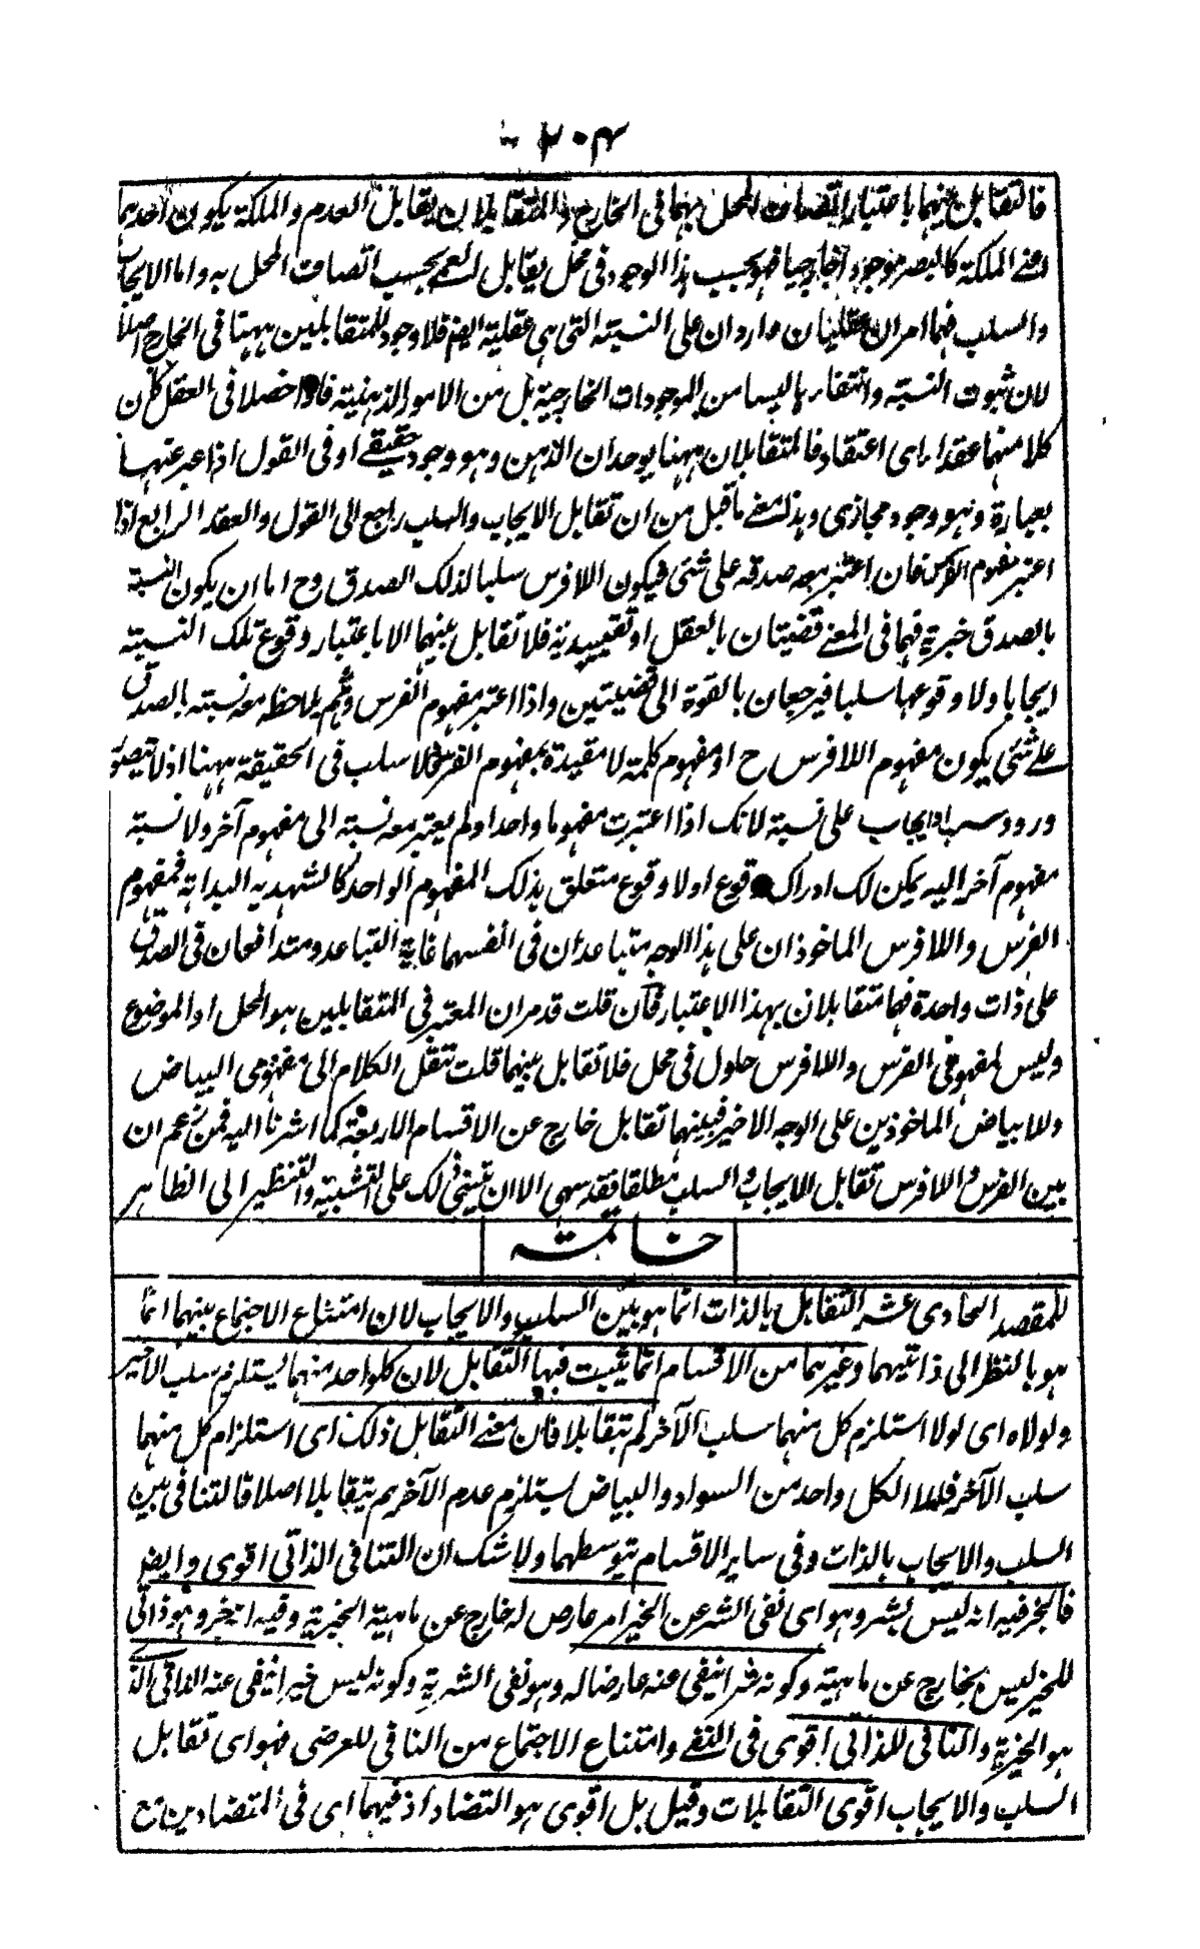 ٢٠٤
فالتقابل بينهما باعتبار اتصاف المحل بهما فى الخارج والمتقابلان بتقابل العدم والملكة يكون احدهما
اعنے الملكة كالبصر موجودا خارجيا فهو بحسب هذا الوجود فى محل يقابل العمى بحسب اتصاف المحل به واما الايجاب
والسلب فهما امران عقليان واردان على النسبة التى هى عقلية ايضا فلا وجود للمتقابلين ههنا فى الخارج اصلا
لان ثبوت النسبة وانتفاءها ليسا من الموجودات الخارجية بل من الامور الذهنية فاذا حصلا فى العقل كان
كل منهما عقدا اى اعتقادا فالمتقابلان ههنا يوجدان فى الذهن وهو وجود حقيقے او فى القول اذا عبر عنهما
بعبارة وهو وجود مجازى وهذا معنے ما قيل من ان تقابل الايجاب والسلب راجع الى القول والعقد الرابع اذا
اعتبر مفهوم الفرس فان اعتبر معه صدقه على شئ فيكون اللافرس سلبا لذلك الصدق وح اما ان يكون النسبة
بالصدق خبرية فهما فى المعنے قضيتان بالعقل او تقييدية فلا تقابل بينهما الا باعتبار وقوع تلك النسبة
ايجابا ولا وقوعها سلبا فيرجعان بالقوة الى قضيتين واذا اعتبر مفهوم الفرس ولم يلاحظ معه نسبة بالصدق
علے شئ يكون مفهوم اللافرس ح او مفهوم كلمة لا مقيدة بمفهوم الفرس ولا سلب فى الحقيقة ههنا اذ لا يتصور
ورود سلب او ايجاب على نسبة لانك اذا اعتبرت مفهوما واحدا ولم يعتبر معه نسبة الى مفهوم آخر ولا نسبة
مفهوم آخر اليه يمكن لك ادراك وقوع او لا وقوع متعلق بذلك المفهوم الواحد كما تشهد به البداهة فمفهوم
الفرس واللافرس الماخوذان على هذا الوجه متباعدان فى انفسهما غاية التباعد ومتدافعان فى الصدق
على ذات واحدة فهما متقابلان بهذا الاعتبار فان قلت قد مر ان المعتبر فى المتقابلين هو المحل او الموضوع
وليس لمفهومى الفرس واللافرس حلول فى محل فلا تقابل بينهما قلت ننقل الكلام الى مفهومى البياض
واللابياض الماخوذين على الوجه الاخير فبينهما تقابل خارج عن الاقسام الاربعة كما اشرنا اليه فمن زعم ان
بين الفرس واللافرس تقابل الايجاب والسلب مطلقا فقد سهى الا ان يبنى ذلك على التشبيه والتنظير الى الظاهر
خاتمة
المقصد الحادى عشر التقابل بالذات انما هو بين السلب والايجاب لان امتناع الاجتماع بينهما انما
هو بالنظر الى ذاتيهما وغيرهما من الاقسام انما يثبت فيها التقابل لان كلا واحد منهما يستلزم سلب الآخر
ولولاه اى لولا استلزام كل منهما سلب الآخر لم يتقابلا فان معنے التقابل ذلك اى استلزام كل منهما
سلب الآخر فلولا ان كل واحد من السواد والبياض يستلزم عدم الآخر لم يتقابلا اصلا فالتنافى بين
السلب والايجاب بالذات وفى ساير الاقسام بتوسطهما ولا شك ان التنافى الذاتى اقوى وايضا
فالخير فيه انه ليس بشر وهو اى نفى الشر عن الخير امر عارض له خارج عن ماهية الخيرية وفيه انه خير وهو ذاتى
للخير ليس بخارج عن ماهيته وكونه شرا ينفى عنه عارضا له وهو نفى الشرية وكونه ليس خيرا ينفى عنه الذاتى الذى
هو الخيرية والنافى للذاتى اقوى فى النفے وامتناع الاجتماع من النافى للعرضى فهو اى تقابل
السلب والايجاب اقوى التقابلات وقيل بل اقوى هو التضاد اذ فيهما اى فى المتضادين مع